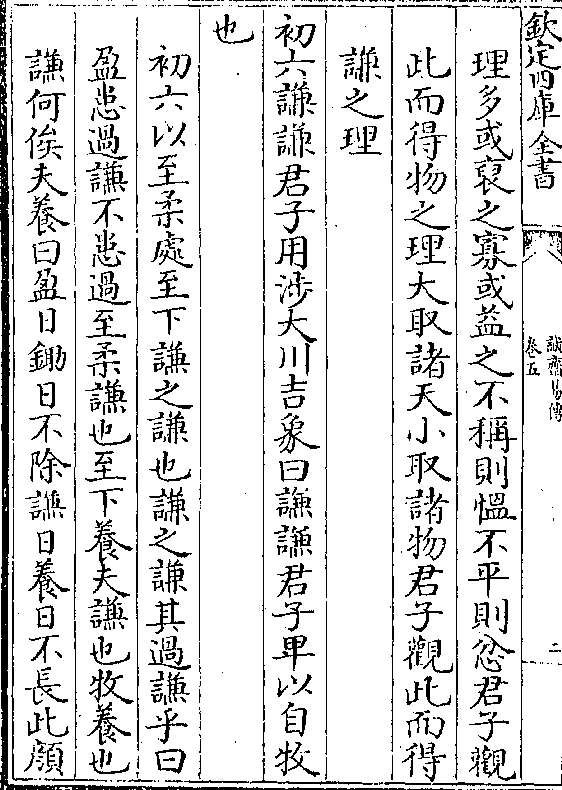 欽定四庫全書
誠齋易傳
卷五
二
理多或裒之寡或益之不稱則愠不平則忿君子觀
此而得物之理大取諸天小取諸物君子觀此而得
謙之理
初六謙謙君子用涉大川吉象曰謙謙君子卑以自牧
也
初六以至柔處至下謙之謙也謙之謙其過謙乎曰
盈患過謙不患過至柔謙也至下養夫謙也牧養也
謙何俟夫養曰盈日鋤日不除謙日養日不長此顔